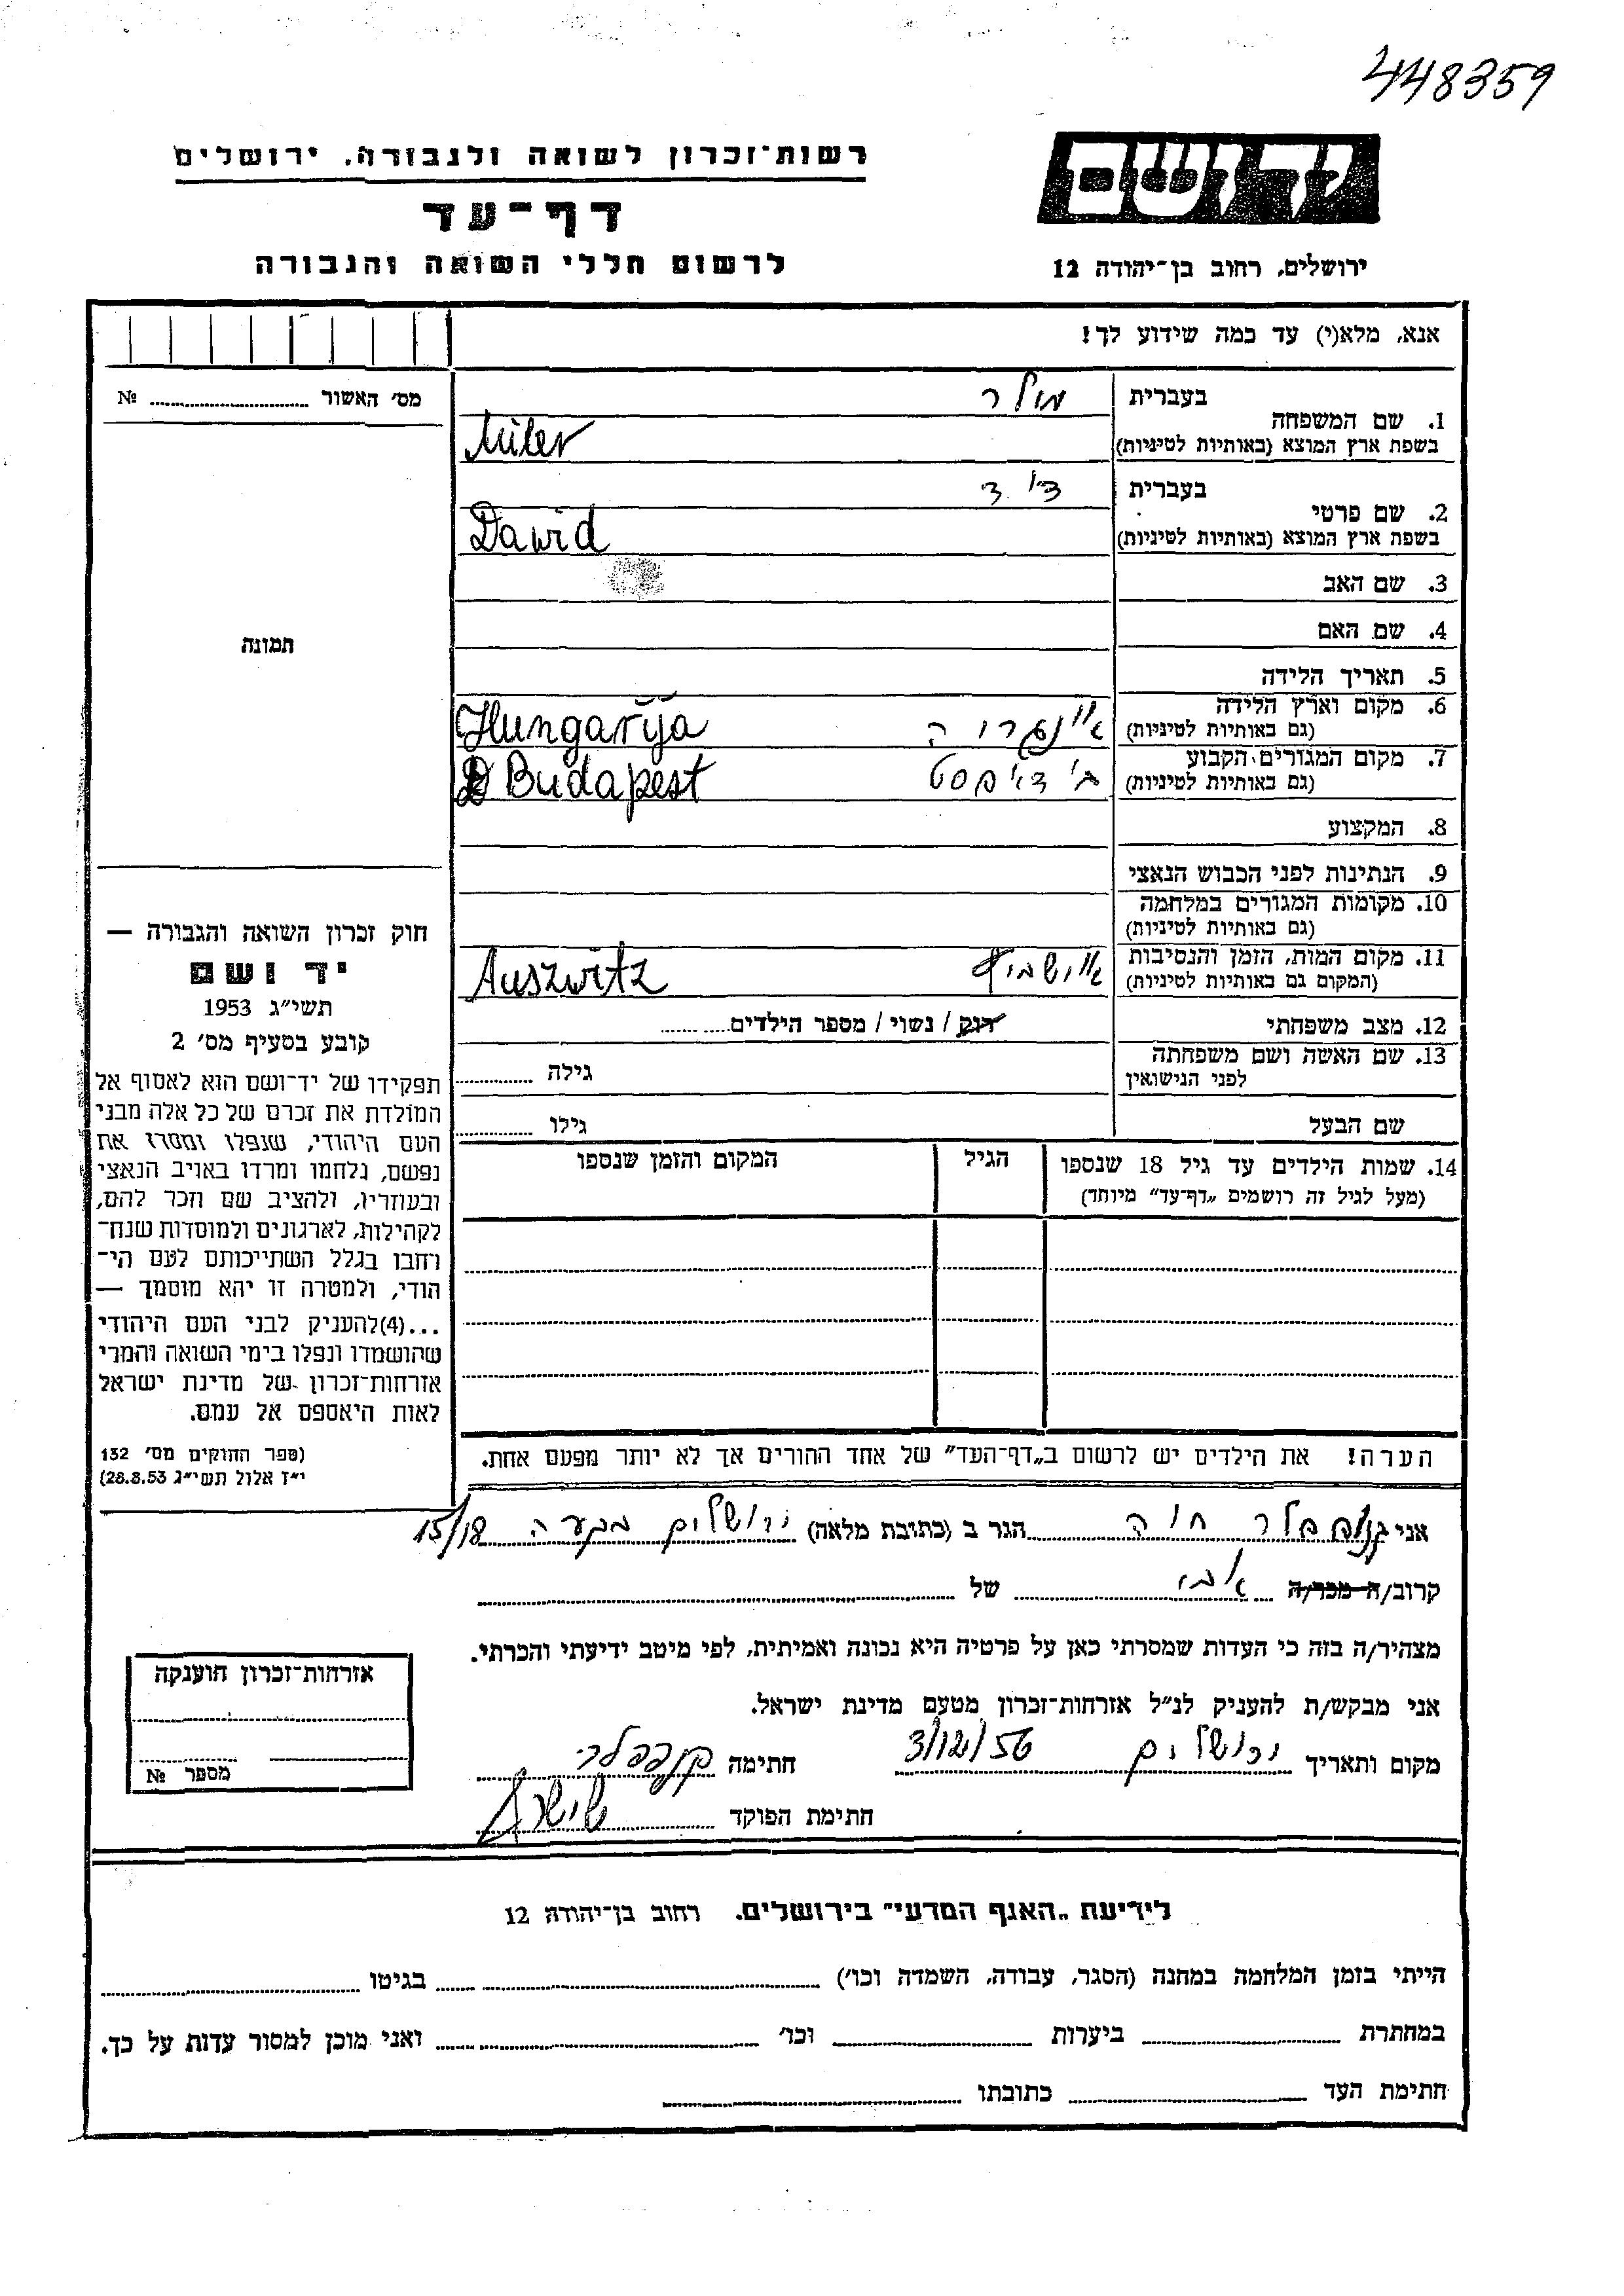 448359
יד ושם
ירושלים, רחוב בן־יהודה 12
רשות־זכרון לשואה ולגבורה, ירושלים
דף־עד
לרשום חללי השואה והגבורה
אנא, מלא(י) עד כמה שידוע לך!
1. שם המשפחה
בעברית
מילר
בשפת ארץ המוצא (באותיות לטיניות)
Miler
2. שם פרטי
בעברית
דוד
בשפת ארץ המוצא (באותיות לטיניות)
Dawid
3. שם האב
4. שם האם
5. תאריך הלידה
6. מקום וארץ הלידה
(גם באותיות לטיניות)
Hungarija
7. מקום המגורים הקבוע
(גם באותיות לטיניות)
בודאפסט
Budapest
8. המקצוע
9. הנתינות לפני הכבוש הנאצי
10. מקומות המגורים במלחמה
(גם באותיות לטיניות)
11. מקום המות, הזמן והנסיבות
(המקום גם באותיות לטיניות)
אושוויץ
Auszwitz
12. מצב משפחתי
רווק / נשוי / מספר הילדים
13. שם האשה ושם משפחתה
לפני הנישואין
גילה
שם הבעל
גילו
14. שמות הילדים עד גיל 18 שנספו
(מעל לגיל זה רושמים „דף־עד” מיוחד)
הגיל
המקום והזמן שנספו
מס׳ האשור № 
תמונה
חוק זכרון השואה והגבורה —
יד ושם
תשי״ג 1953
קובע בסעיף מס׳ 2
תפקידו של יד־ושם הוא לאסוף אל
המולדת את זכרם של כל אלה מבני
העם היהודי, שנפלו ומסרו את
נפשם, נלחמו ומרדו באויב הנאצי
ובעוזריו, ולהציב שם וזכר להם,
לקהילות, לארגונים ולמוסדות שנח־
רחבו בגלל השתייכותם לעם הי־
הודי, ולמטרה זו יהא מוסמך —
...(4)להעניק לבני העם היהודי
שהושמדו ונפלו בימי השואה והמרי
אזרחות־זכרון של מדינת ישראל
לאות היאספם אל עמם.
(ספר החוקים מס׳ 132
י״ז אלול תשי״ג 28.8.53)
הערה! את הילדים יש לרשום ב„דף־העד” של אחד ההורים אך לא יותר מפעם אחת.
אני חוה הגר ב (כתובת מלאה) ירושלים בקעה 15/18
קרוב/ה מכר/ה אבי של
מצהיר/ה בזה כי העדות שמסרתי כאן על פרטיה היא נכונה ואמיתית, לפי מיטב ידיעתי והכרתי.
אני מבקש/ת להעניק לנ״ל אזרחות־זכרון מטעם מדינת ישראל.
מקום ותאריך ירושלים 3/12/56 חתימה
חתימת הפוקד
אזרחות־זכרון הוענקה
מספר №
לידיעת „האגף המדעי” בירושלים. רחוב בן־יהודה 12
הייתי בזמן המלחמה במחנה (הסגר, עבודה, השמדה וכו׳) בגיטו
במחתרת ביערות וכו׳ ואני מוכן למסור עדות על כך.
חתימת העד כתובתו